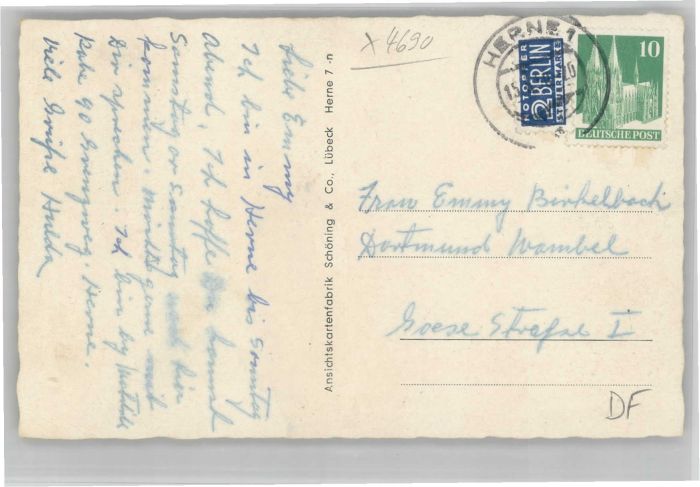 Liebe Emmy
Ich bin in Herne bis Sonntag
Abend. Ich hoffe Du kannst
Samstag or Sonntag nach hier
kommen. mit
Dir sprechen. Ich bin by
90 Herne.
Viele Grüße Hulda
Ansichtskartenfabrik Schöning & Co., Lübeck Herne 7 -n
X 4690
HERNE 1
NOTOPFER
2 BERLIN
STEUERMARKE
10
DEUTSCHE POST
Frau Emmy Birkelbach
Dortmund Wambel
Soese Straße I
DF